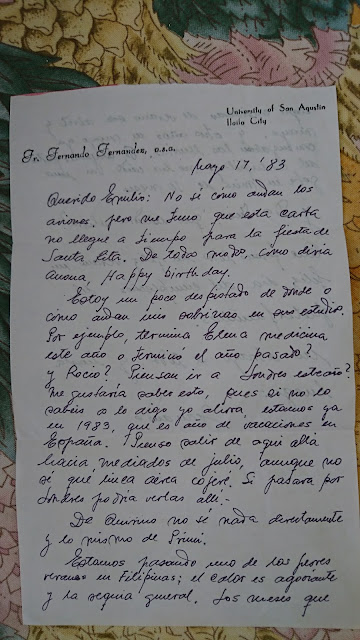 University of San Agustin
Iloilo City
Fr. Fernando Fernandez, o.s.a.
Mayo 17, '83
Querido Emilio: No sé como andan los
aviones, pero me temo que esta carta
no llegue a tiempo para la fiesta de
Santa Rita. De todos modos, como diria
Happy birthday.
Estoy un poco despistado de donde o
cómo andan mis sobrinas en sus estudios.
Por ejemplo, termina Elena medicina
este año o terminó el año pasado?
y Rocio? Piensan ir a Londres este año?
Me gustaría saber esto, pues si no lo
sabéis os lo digo yo ahora, estamos ya
en 1983, que es año de vacaciones en
España. Pienso salir de aquí allá
hacia mediados de julio, aunque no
sé que linea aérea cogeré. Si pasara por
Londres podría verlas allí.-
De no sé nada directamente
y lo mismo de
Estamos pasando uno de los peores
veranos en Filipinas; el calor es agobiante
y la sequia general. Los meses que